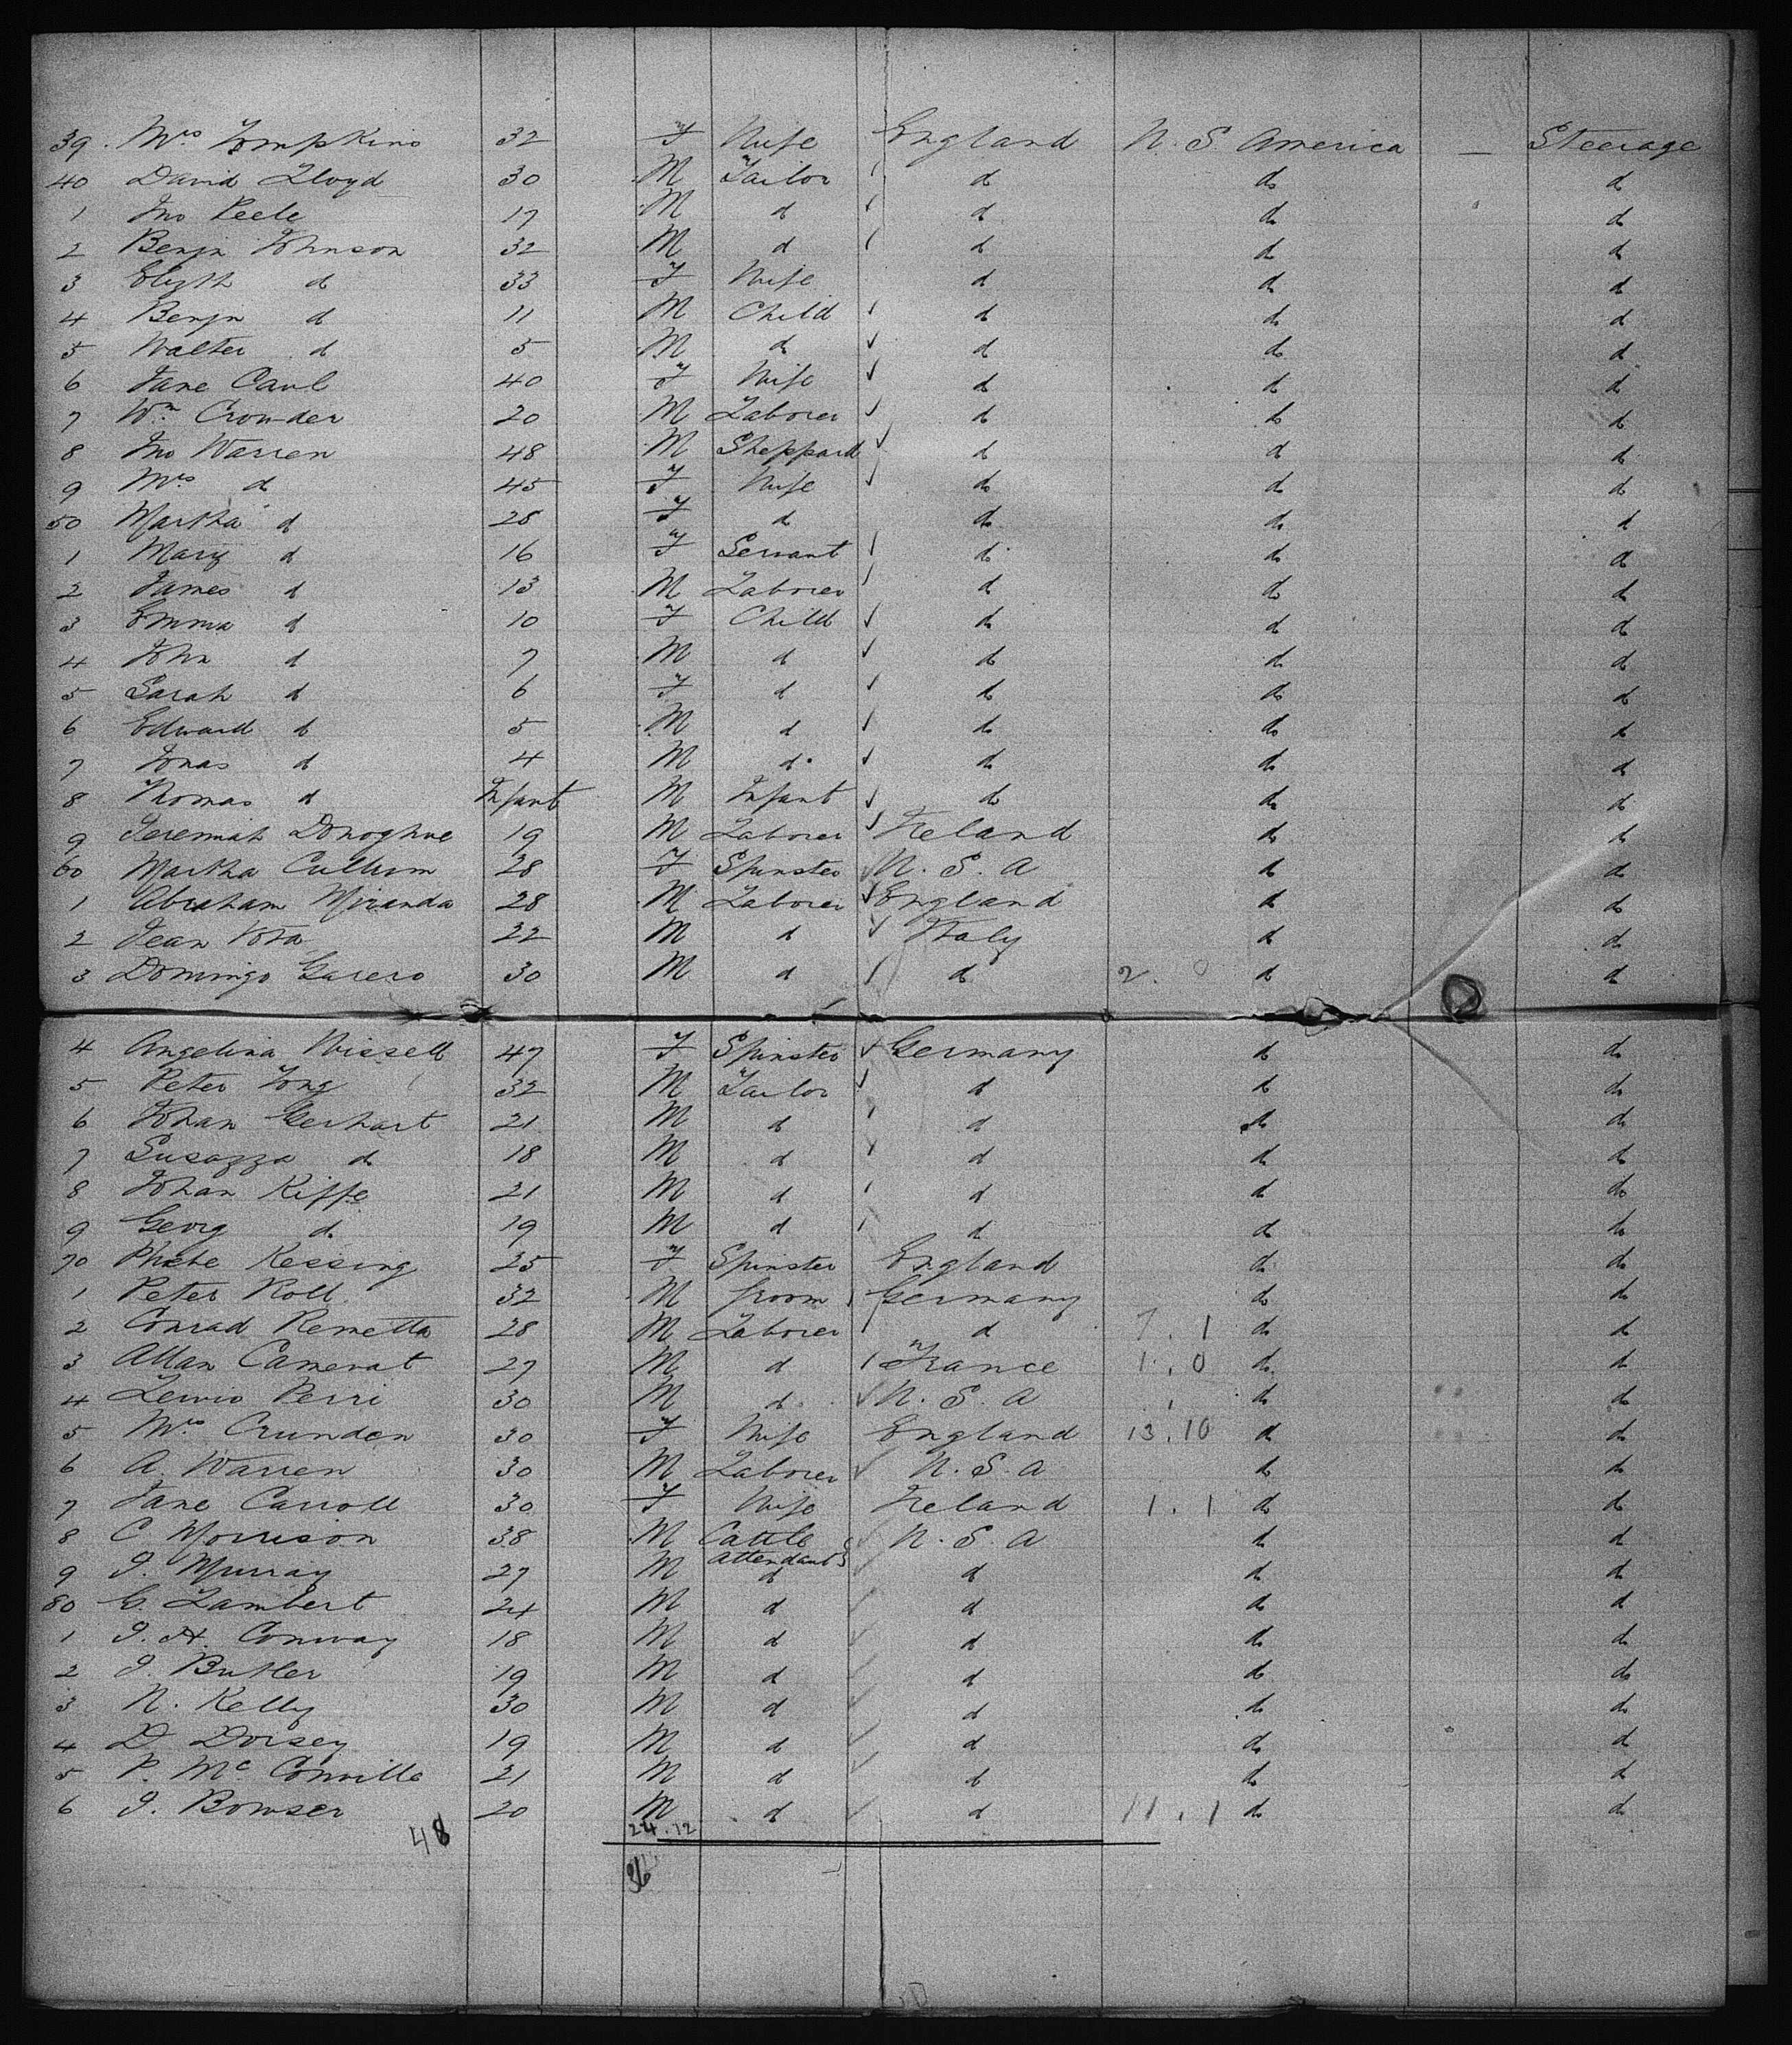 39. Mrs Tompkins 32 F Wife England N. S. America — Steerage
40 David Lloyd 30 M Tailor d do d
1 Jno Peele 17 M d d do d
2 Benjn Johnson 32 M d d do d
3 Elizth d 33 F Wife d do d
4 Benjn d 11 M Child d do d
5 Walter d 5 M do d do d
6 Jane Caul 40 F Wife do do do
7 Wm Crowder 20 M Laborer do do do
8 Jno Warren 48 M Sheppard d d do
9 Mrs d 45 F Wife do do do
50 Martha d 28 F d do do d
1 Mary d 16 F Servant do do do
2 James d 13 M Laborer do do do
3 Emma d 10 F Child do do do
4 John d 7 M d do do do
5 Sarah d 6 F d do do do
6 Edward d 5 M d do do do
7 Jonas d 4 M d do do do
8 Thomas d Infant M Infant do do do
9 Jeremiah Donoghue 19 M Laborer Ireland do do
60 Martha Cullum 28 F Spinster N. S. A do do
1 Abraham Miranda 28 M Laborer England do do
2 Jean Vota 22 M d Italy do do
3 Domingo Garero 30 M d d 2. 0 do do
4 Angelina Wissell 47 F Spinster Germany do do
5 Peter Tong 32 M Tailor d do do
6 Johan Gerhart 21 M d d do do
7 Susazza do 18 M d d do do
8 Johan Kiffe 21 M d d do do
9 Georg d. 19 M d d do do
70 Phebe Kessing 25 F Spinster England do do
1 Peter Roll 32 M Groom Germany do do
2 Conrad Remetta 28 M Laborer d 7. 1 do do
3 Allan Camerat 27 M d France 1. 0 do do
4 Lewis Perri 30 M d N. S. A do do
5 Mrs Crunden 30 F Wife England 13. 10 do do
6 A. Warren 30 M Laborer N. S. A do do
7 Jane Carroll 30 F Wife Ireland 1. 1 do do
8 C Morrison 38 M Cattle N. S. A do do
Attendant
9 J. Murray 27 M d d do do
80 C. Lambert 24 M d d do d
1 J. H. Conway 18 M d d do do
2 J. Butler 19 M d d do do
3 N. Kelly 30 M d d do do
4 D Dorsey 19 M d d do d
5 P. McConville 21 M d d do d
6 J. Bowser 20 M d d 11. 1 do d
48 24.12
36